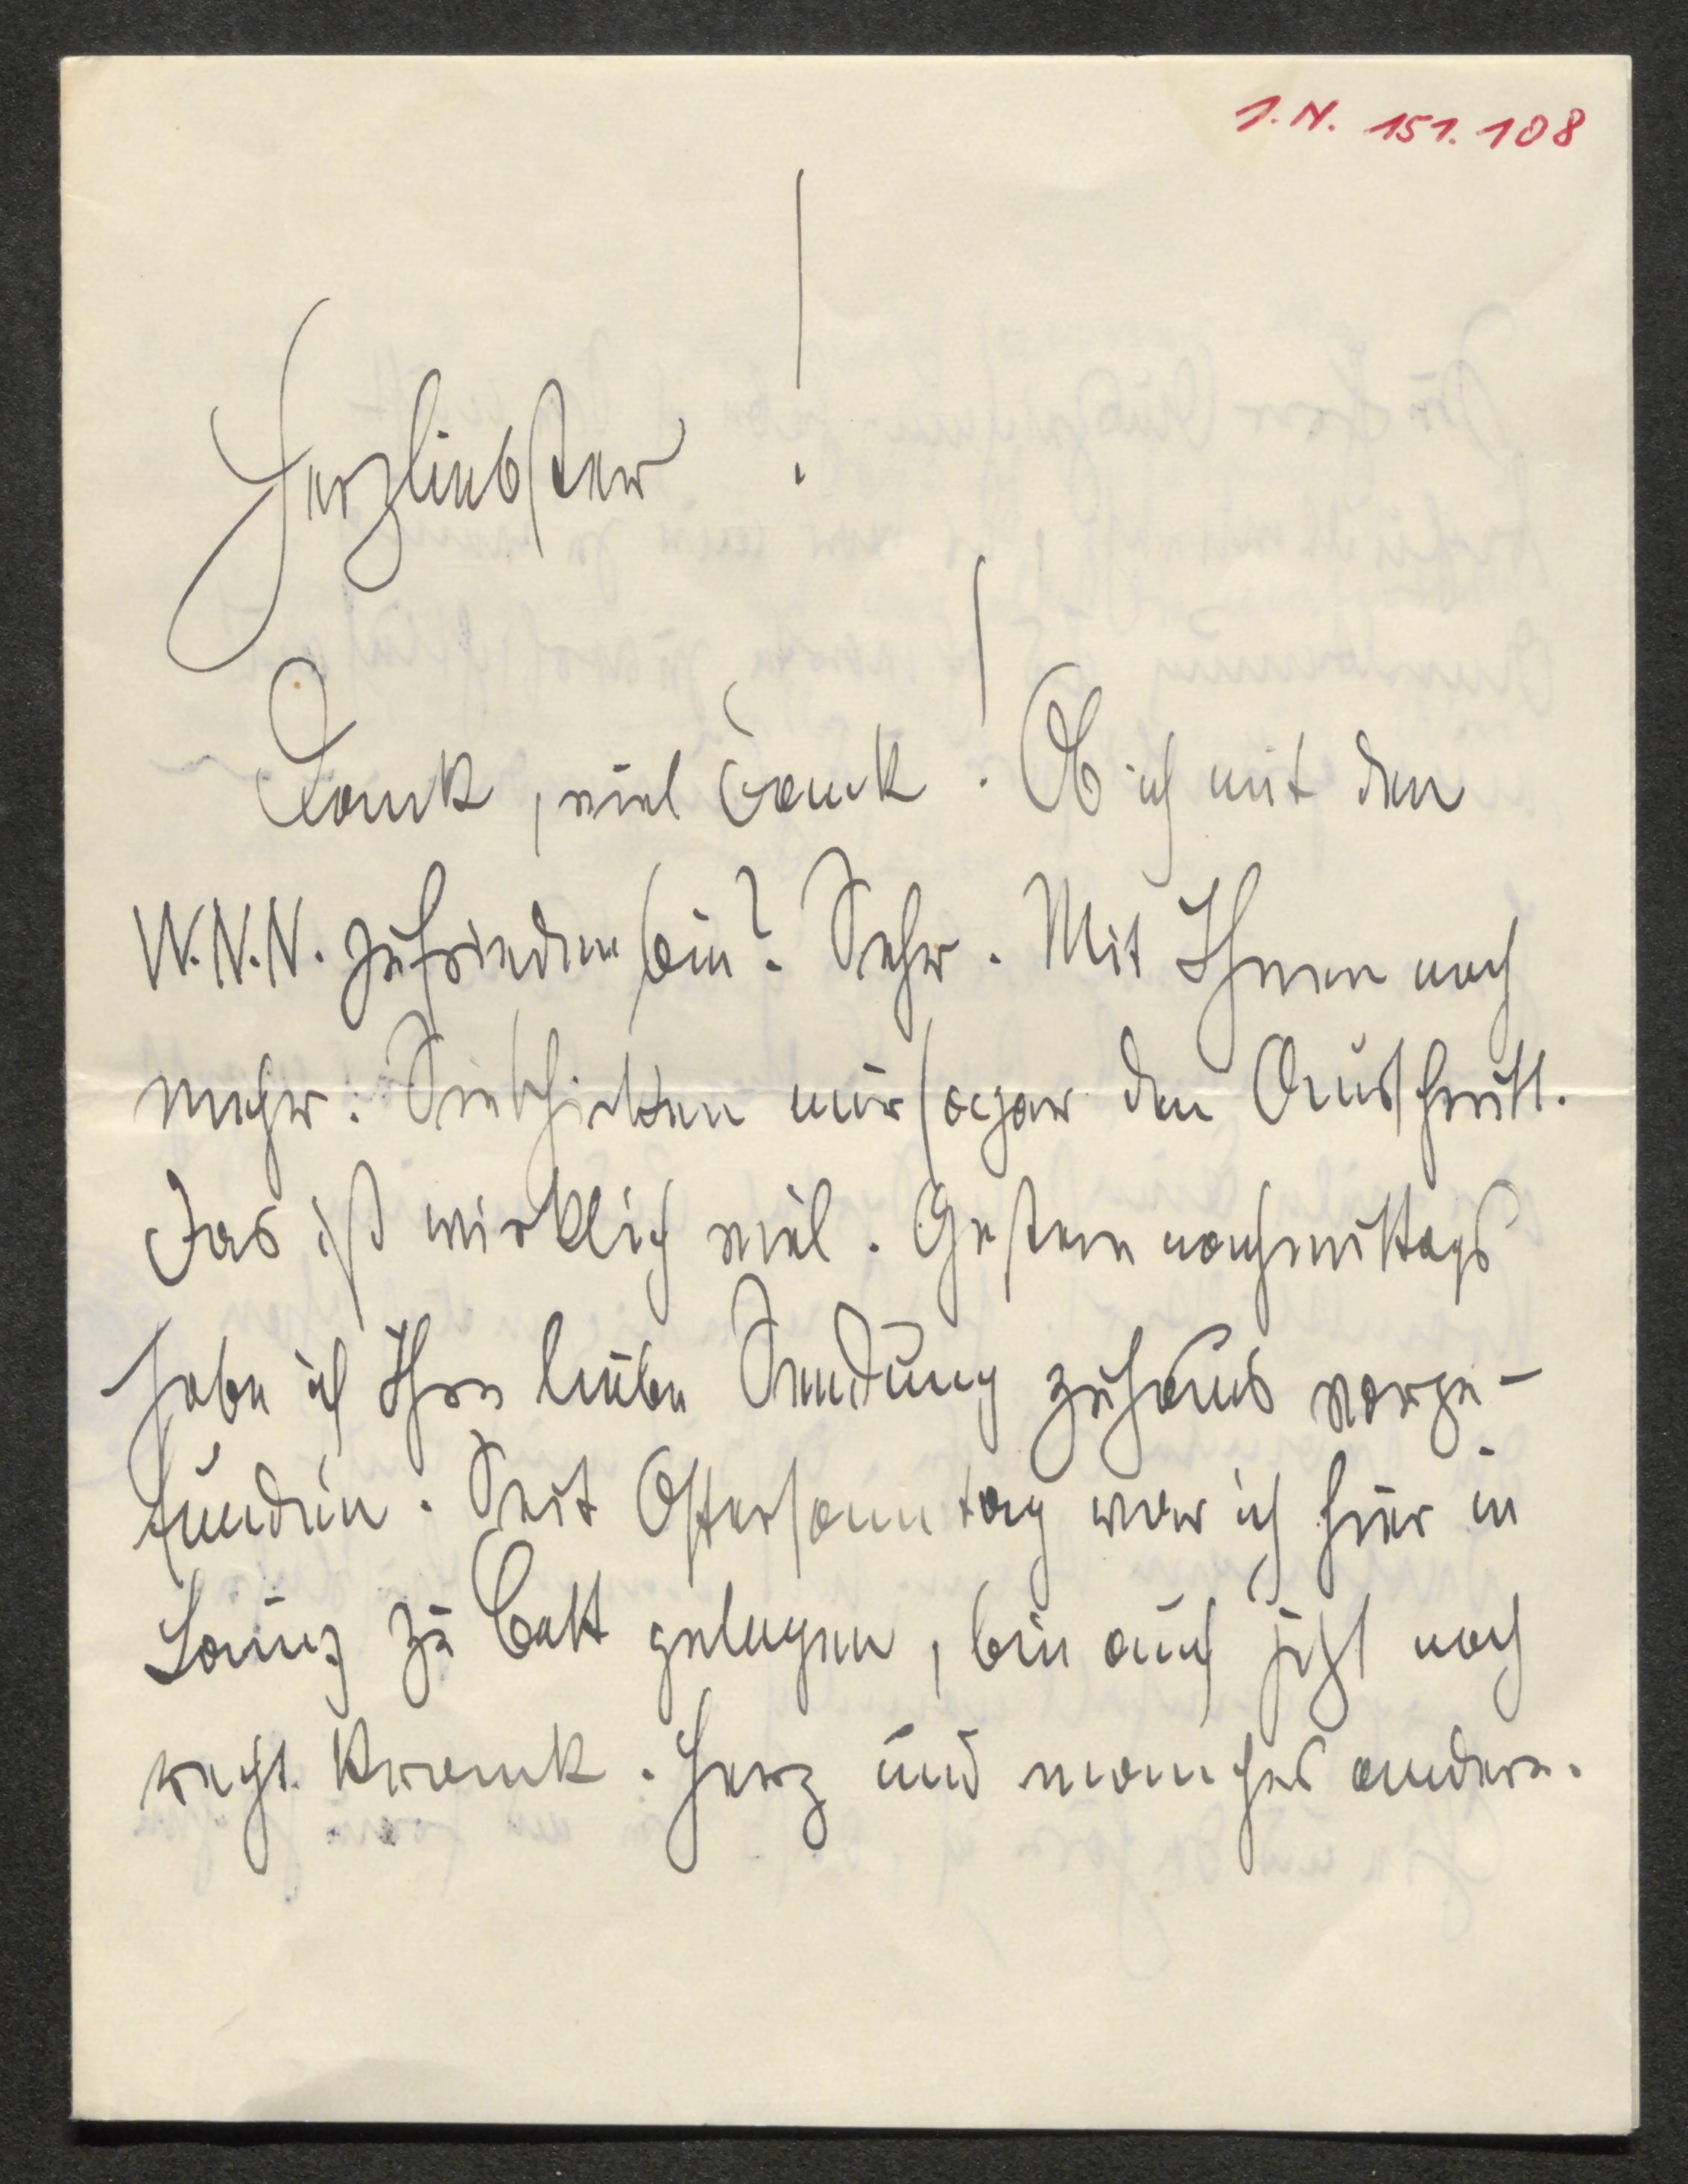 I.N. 151.108
Herzliebster!
Dank, viel Dank! Ob ich mit den
W.N.N. zufrieden bin? Sehr. Mit Ihnen noch
mehr: Sie schickten mir sogar den Ausschnitt.
Das ist wirklich viel. Gestern nachmittags
habe ich Ihre liebe Sendung zuhaus vorge-
funden. Seit Ostersonntag war ich hier in
Lainz zu Bett gelegen, bin auch jetzt noch
recht krank. Herz und manches andere.